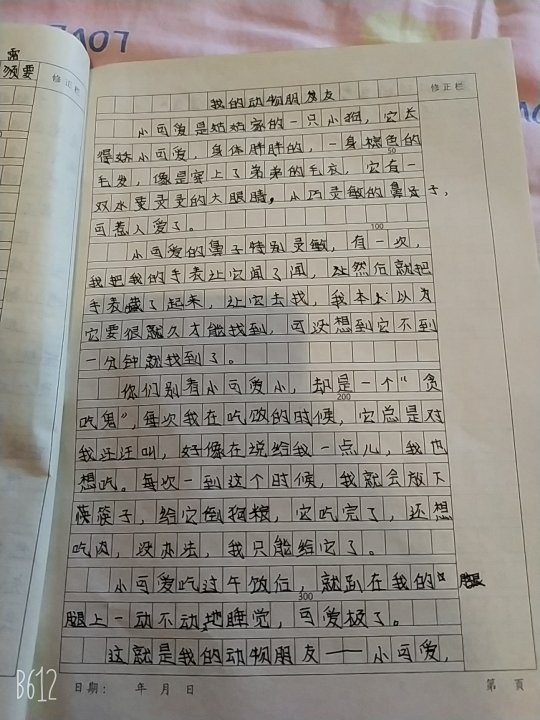 霜
须要
修正栏
修正栏
我的动物朋友
小可爱是姑姑家的一只小狗，它长
得娇小可爱，身体胖胖的，一身棕色的
50
毛发，像是穿上了弟弟的毛衣，它有一
双水灵灵的大眼睛，小巧灵敏的鼻子，
可惹人爱了。
100
小可爱的鼻子特别灵敏，有一次，
我把我的手表让它闻了闻，然后就把
手表藏了起来，让它去找，我本以为
它要很久才能找到，可没想到它不到
一分钟就找到了。
你们别看小可爱小，却是一个“贪
200
吃鬼”，每次我在吃饭的时候，它总是对
我汪汪叫，好像在说给我一点儿，我也
想吃。每次一到这个时候，我就会放下
筷子，给它倒狗粮，它吃完了，还想
吃肉，没办法，我只能给它了。
小可爱吃过午饭后，就趴在我的腿
300
腿上一动不动地睡觉，可爱极了。
这就是我的动物朋友——小可爱，
日期： 年 月 日
第 页
B612